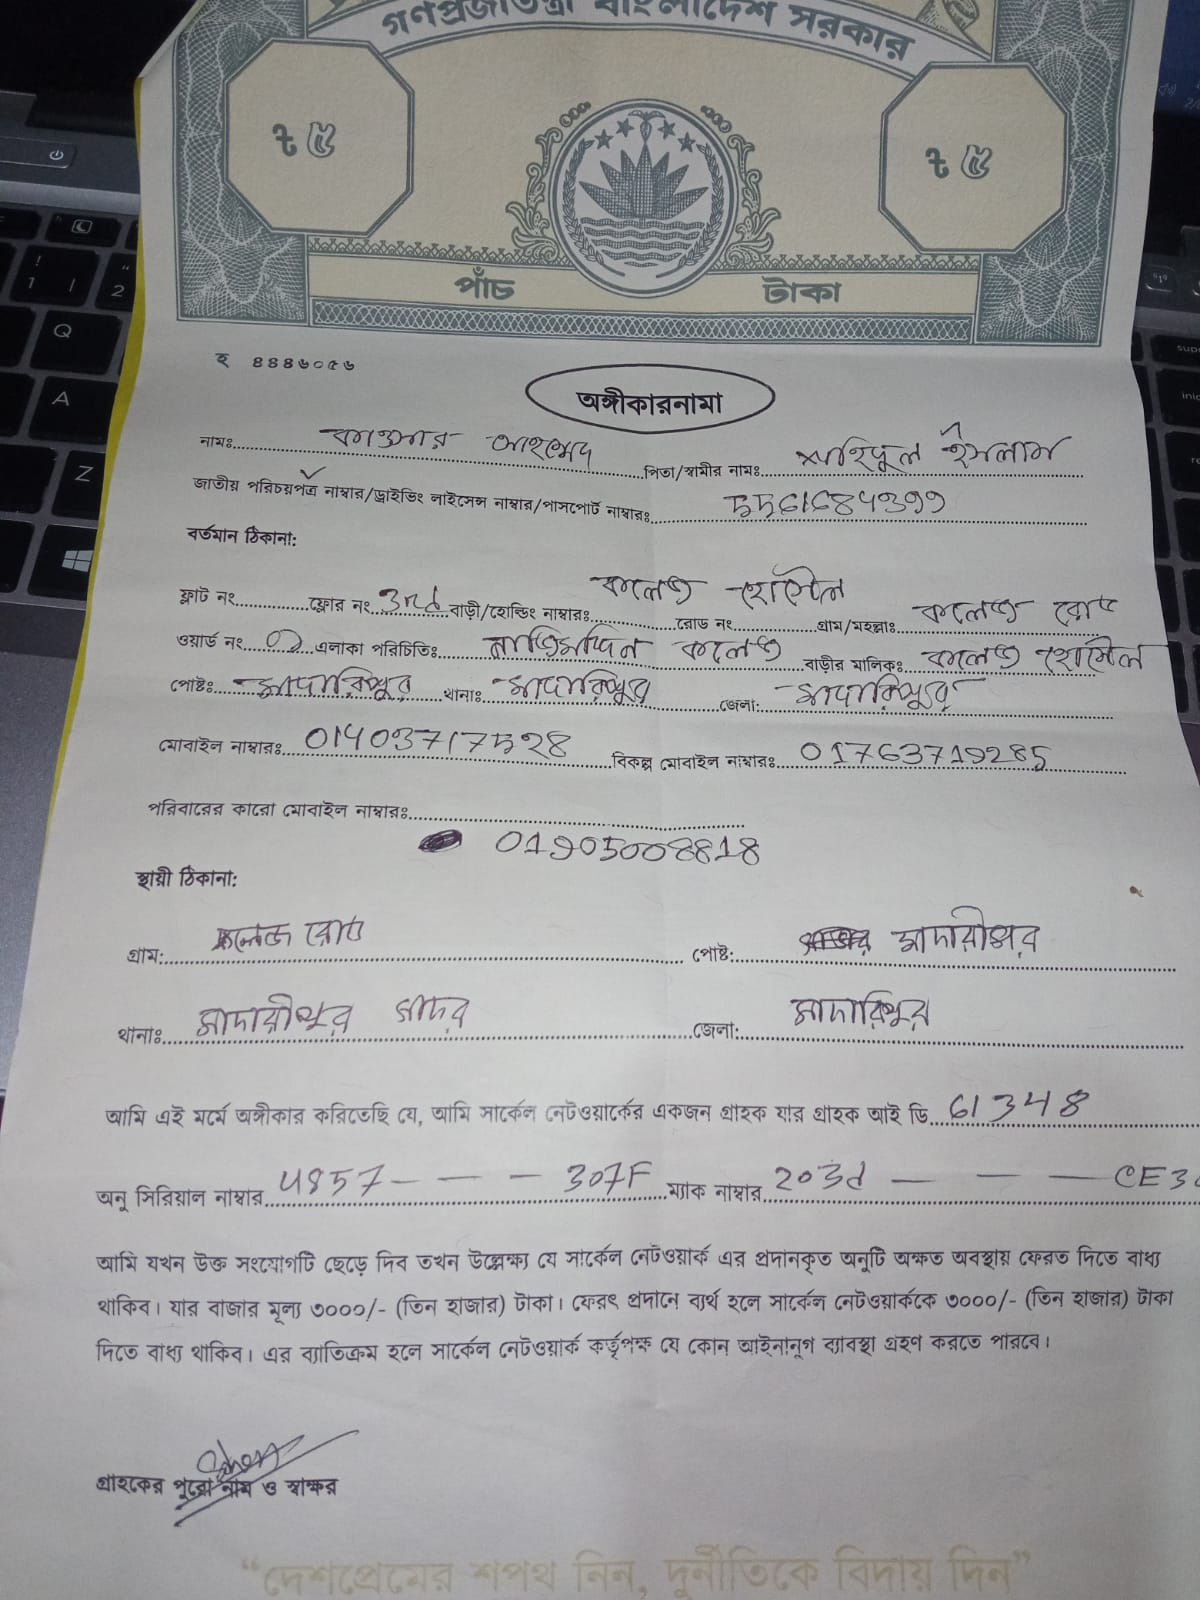 গণপ্রজাতন্ত্রী বাংলাদেশ সরকার
৳ ৫ ৳ ৫
পাঁচ টাকা
হ ৪৪৪৬০৫৬
অঙ্গীকারনামা
নামঃ কাওসার আহম্মেদ পিতা/স্বামীর নামঃ শহিদুল ইসলাম
জাতীয় পরিচয়পত্র নাম্বার/ড্রাইভিং লাইসেন্স নাম্বার/পাসপোর্ট নাম্বারঃ
বর্তমান ঠিকানা:
ফ্লাট নং ফ্লোর নং 3rd বাড়ী/হোল্ডিং নাম্বারঃ কলেজ হোস্টেল রোড নং গ্রাম/মহল্লাঃ কলেজ রোড
ওয়ার্ড নং এলাকা পরিচিতিঃ নাজিমদ্দিন কলেজ বাড়ীর মালিকঃ কলেজ হোস্টেল
পোষ্টঃ মাদারিপুর থানাঃ মাদারিপুর জেলা: মাদারিপুর
মোবাইল নাম্বারঃ বিকল্প মোবাইল নাম্বারঃ 01763719285
পরিবারের কারো মোবাইল নাম্বারঃ
01905008818
স্থায়ী ঠিকানা:
গ্রাম: কলেজ রোড পোষ্ট: মাদারীপুর
থানাঃ মাদারীপুর সদর জেলা: মাদারিপুর
আমি এই মর্মে অঙ্গীকার করিতেছি যে, আমি সার্কেল নেটওয়ার্কের একজন গ্রাহক যার গ্রাহক আই ডি 61348
অনু সিরিয়াল নাম্বার 4857 - - - 307F ম্যাক নাম্বার 203d - - - CE30
আমি যখন উক্ত সংযোগটি ছেড়ে দিব তখন উল্লেক্ষ্য যে সার্কেল নেটওয়ার্ক এর প্রদানকৃত অনুটি অক্ষত অবস্থায় ফেরত দিতে বাধ্য
থাকিব। যার বাজার মূল্য ৩০০০/- (তিন হাজার) টাকা। ফেরৎ প্রদানে ব্যর্থ হলে সার্কেল নেটওয়ার্ককে ৩০০০/- (তিন হাজার) টাকা
দিতে বাধ্য থাকিব। এর ব্যাতিক্রম হলে সার্কেল নেটওয়ার্ক কর্তৃপক্ষ যে কোন আইনানুগ ব্যাবস্থা গ্রহণ করতে পারবে।
গ্রাহকের পুরো নাম ও স্বাক্ষর
“দেশপ্রেমের শপথ নিন, দুর্নীতিকে বিদায় দিন”